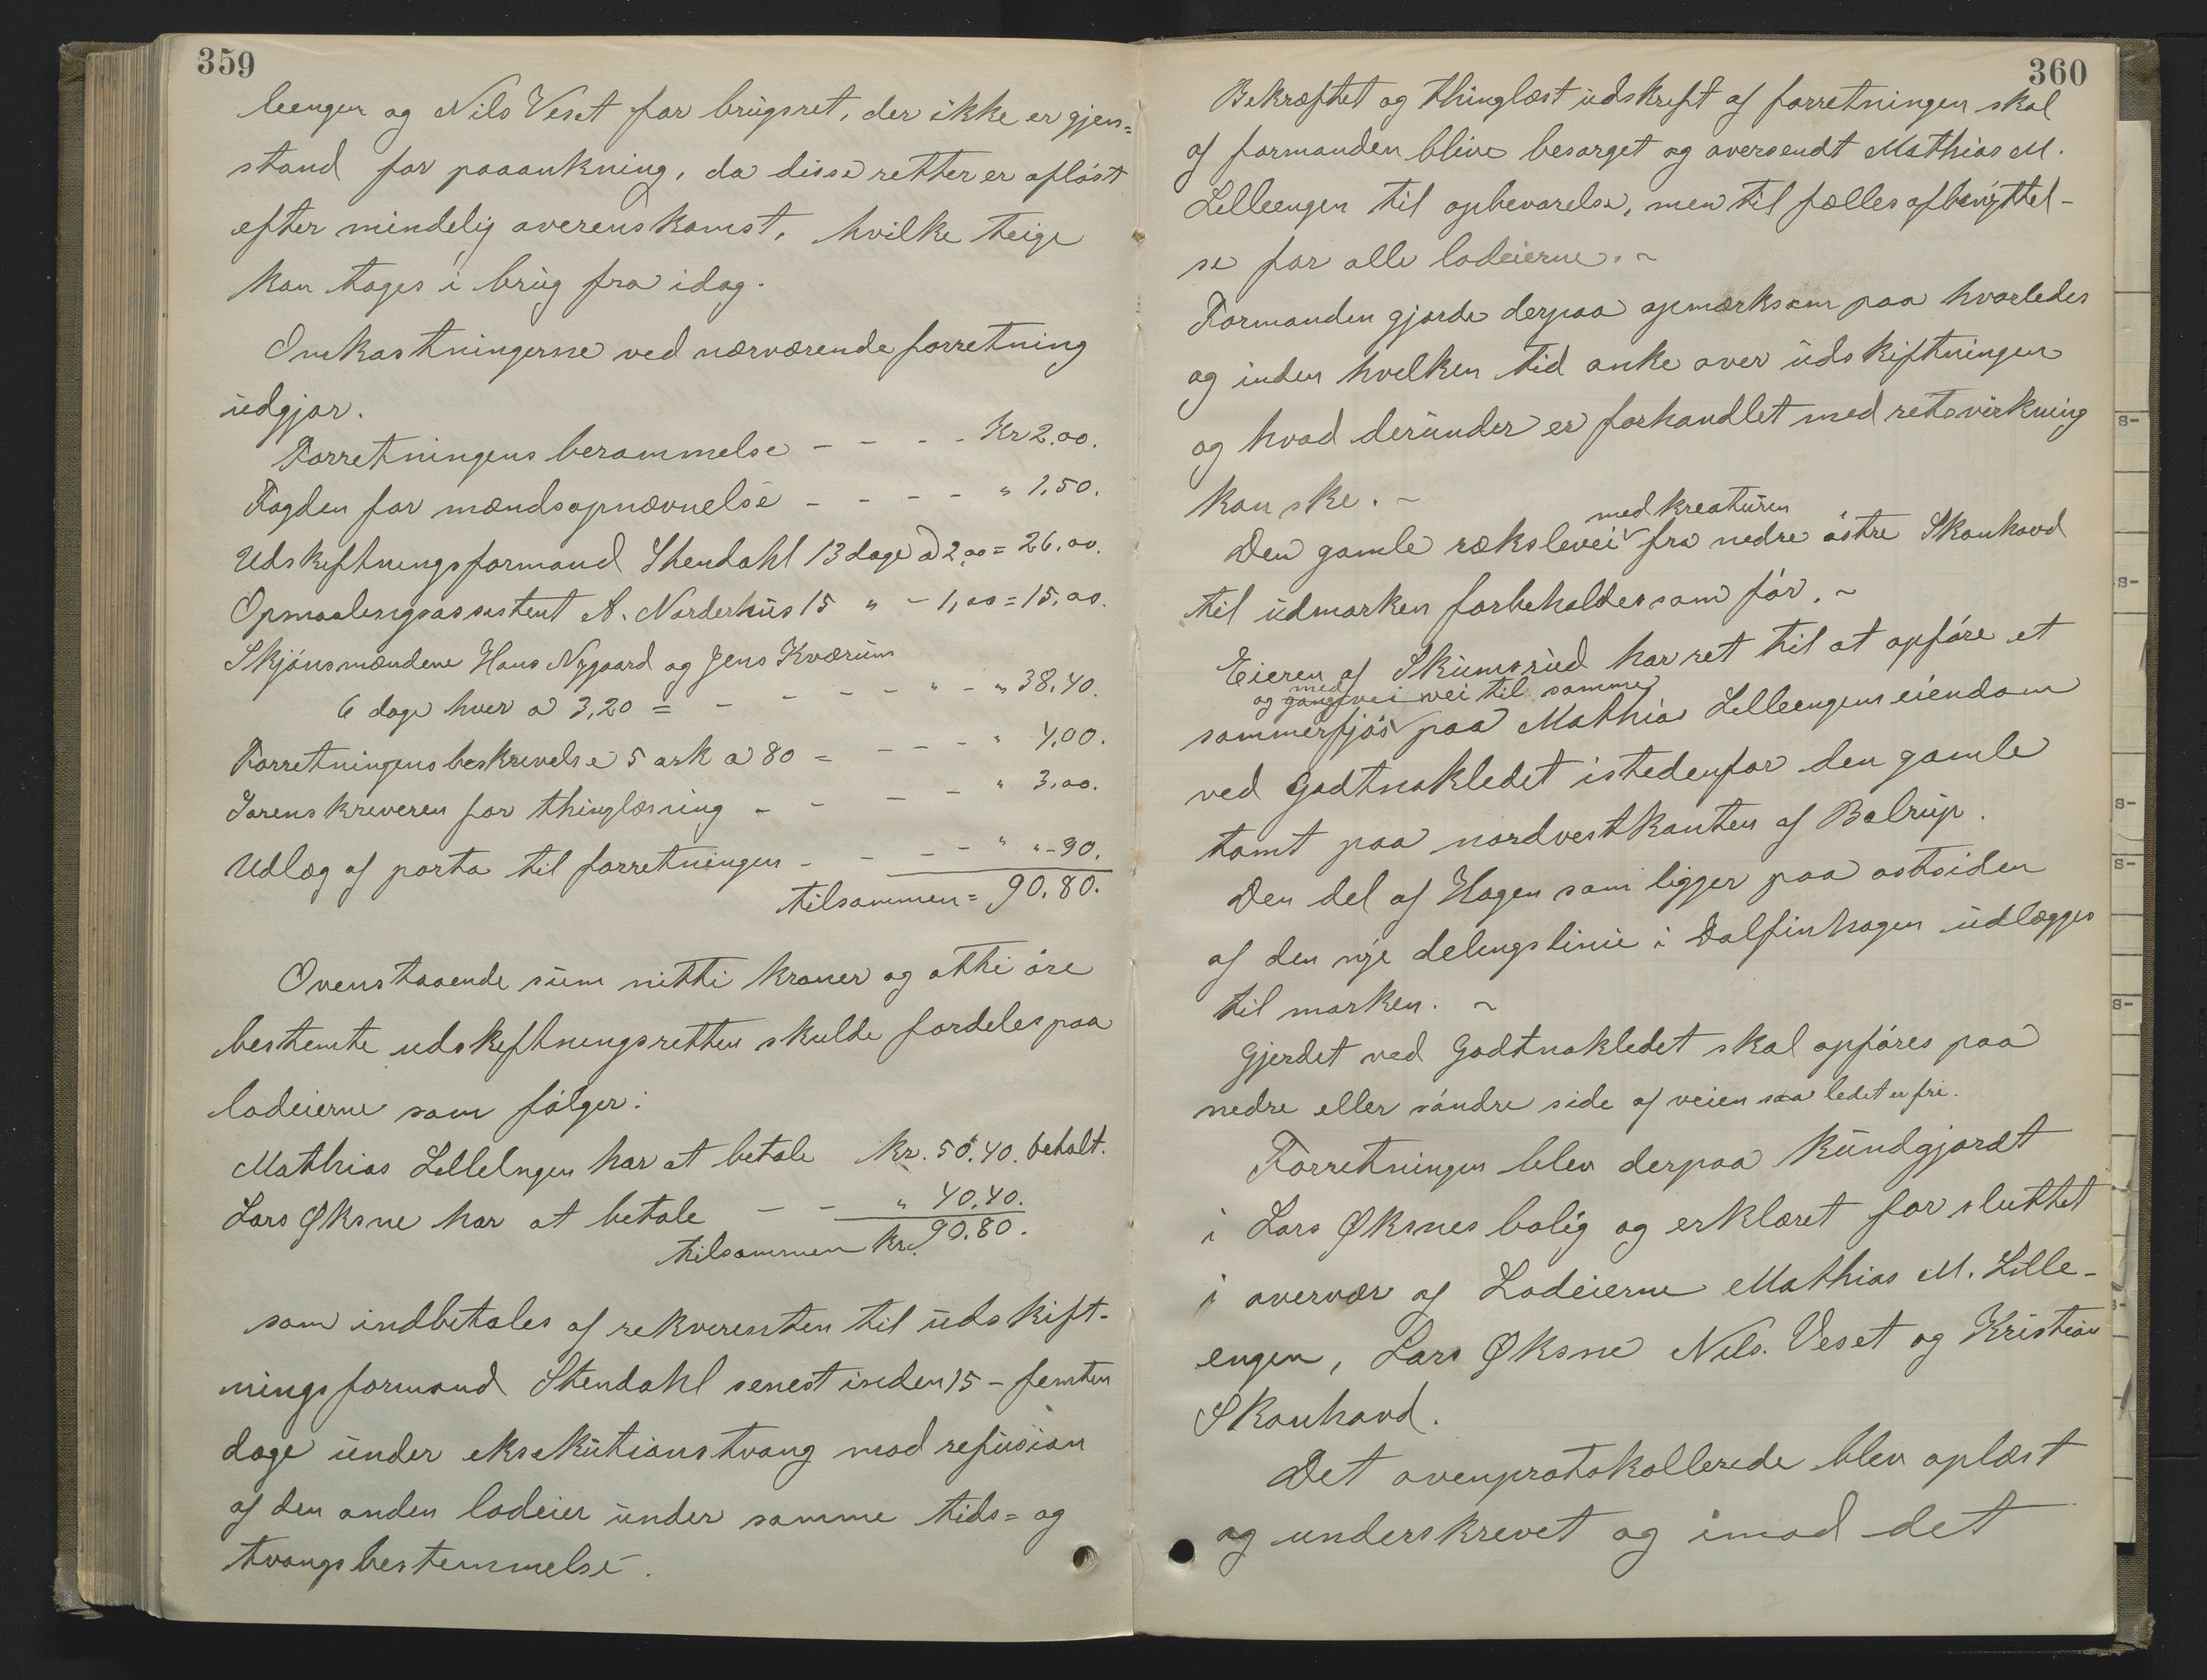 359
leengen og Nils Veset for brugsret, der ikke er gjen=
stand for paaankning, da disse retter er afløst
efter mindelig overenskomst, hvilke teige
kan tages i brug fra idag.
Omkostningerne ved nærværende forretning
udgjør.
Forretningens berammelse - - - - Kr 2.00.
Fogden for mændsopnævnelse - - - - " 1.50.
Udskiftningsformand Stendahl 13 dage a 2,00 = 26,00.
Opmaalingsassistent A. Norderhus 15 " - 1,00 = 15,00.
Skjønsmændene Hans Nygaard og Jens Kværum
6 dage hver a 3,20 = - - - - " - " 38,40.
Forretningens beskrivelse 5 ark a 80 = - - - " 4,00.
Sorenskriveren for thinglæsning - - - - " 3,00.
Udlæg af porto til forretningen - - - - " " -90.
tilsammen = 90,80.
Ovenstaaende sum nitti kroner og otti øre
bestemte udskiftningsretten skulde fordeles paa
lodeierne som følger:
Mathias LilleEngen har at betale Kr. 50.40. betalt.
Lars Øksne har at betale - - " 40,40.
tilsammen Kr. 90.80.
som indbetales af rekvirenten til udskift-
ningsformand Stendahl senest inden 15 - femten
dage under eksekutionstvang mod refusion
af den anden lodeier under samme tids= og
tvangsbestemmelse.
360
Bekræftet og thinglæst udskrift af forretningen skal
af formanden blive besørget og oversendt Mathias M.
Lilleengen til opbevarelse, men til fælles afbenyttel-
se for alle lodeierne. ~
Formanden gjorde derpaa opmærksom paa hvorledes
og inden hvilken tid anke over udskiftningen
og hvad derunder er forhandlet med retsvirkning
kan ske. ~
med kreaturen
Den gamle rækslevei fra nedre østre Skonhovd
til udmarken forbeholdes som før. ~
Eieren af Skumsrud har ret til at opføre et
og gangvei med vei til samme
sommerfjøs paa Mathias Lilleengens eiendom
ved Godtnokledet istedenfor den gamle
tomt paa nordvestkanten af Bolrup.
Den del af Hagen som ligger paa ostsiden
af den nye delingslinie i Dalfinhagen udlægges
til marken. ~
Gjerdet ved Godtnokledet skal opføres paa
nedre eller søndre side af veien saa ledet er fri.
Forretningen blev derpaa kundgjordt
i Lars Øksnes bolig og erklæret for sluttet
i overvær af Lodeierne Mathias M. Lille-
engen, Lars Øksne Nils. Veset og Kristian
Skonhovd.
Det ovenprotokollerede blev oplæst
og underskrevet og imod det